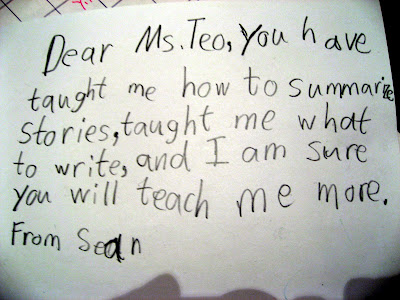 Dear Ms. Teo, you have
taught me how to summarize
stories, taught me what
to write, and I am sure
you will teach me more.
From Sean